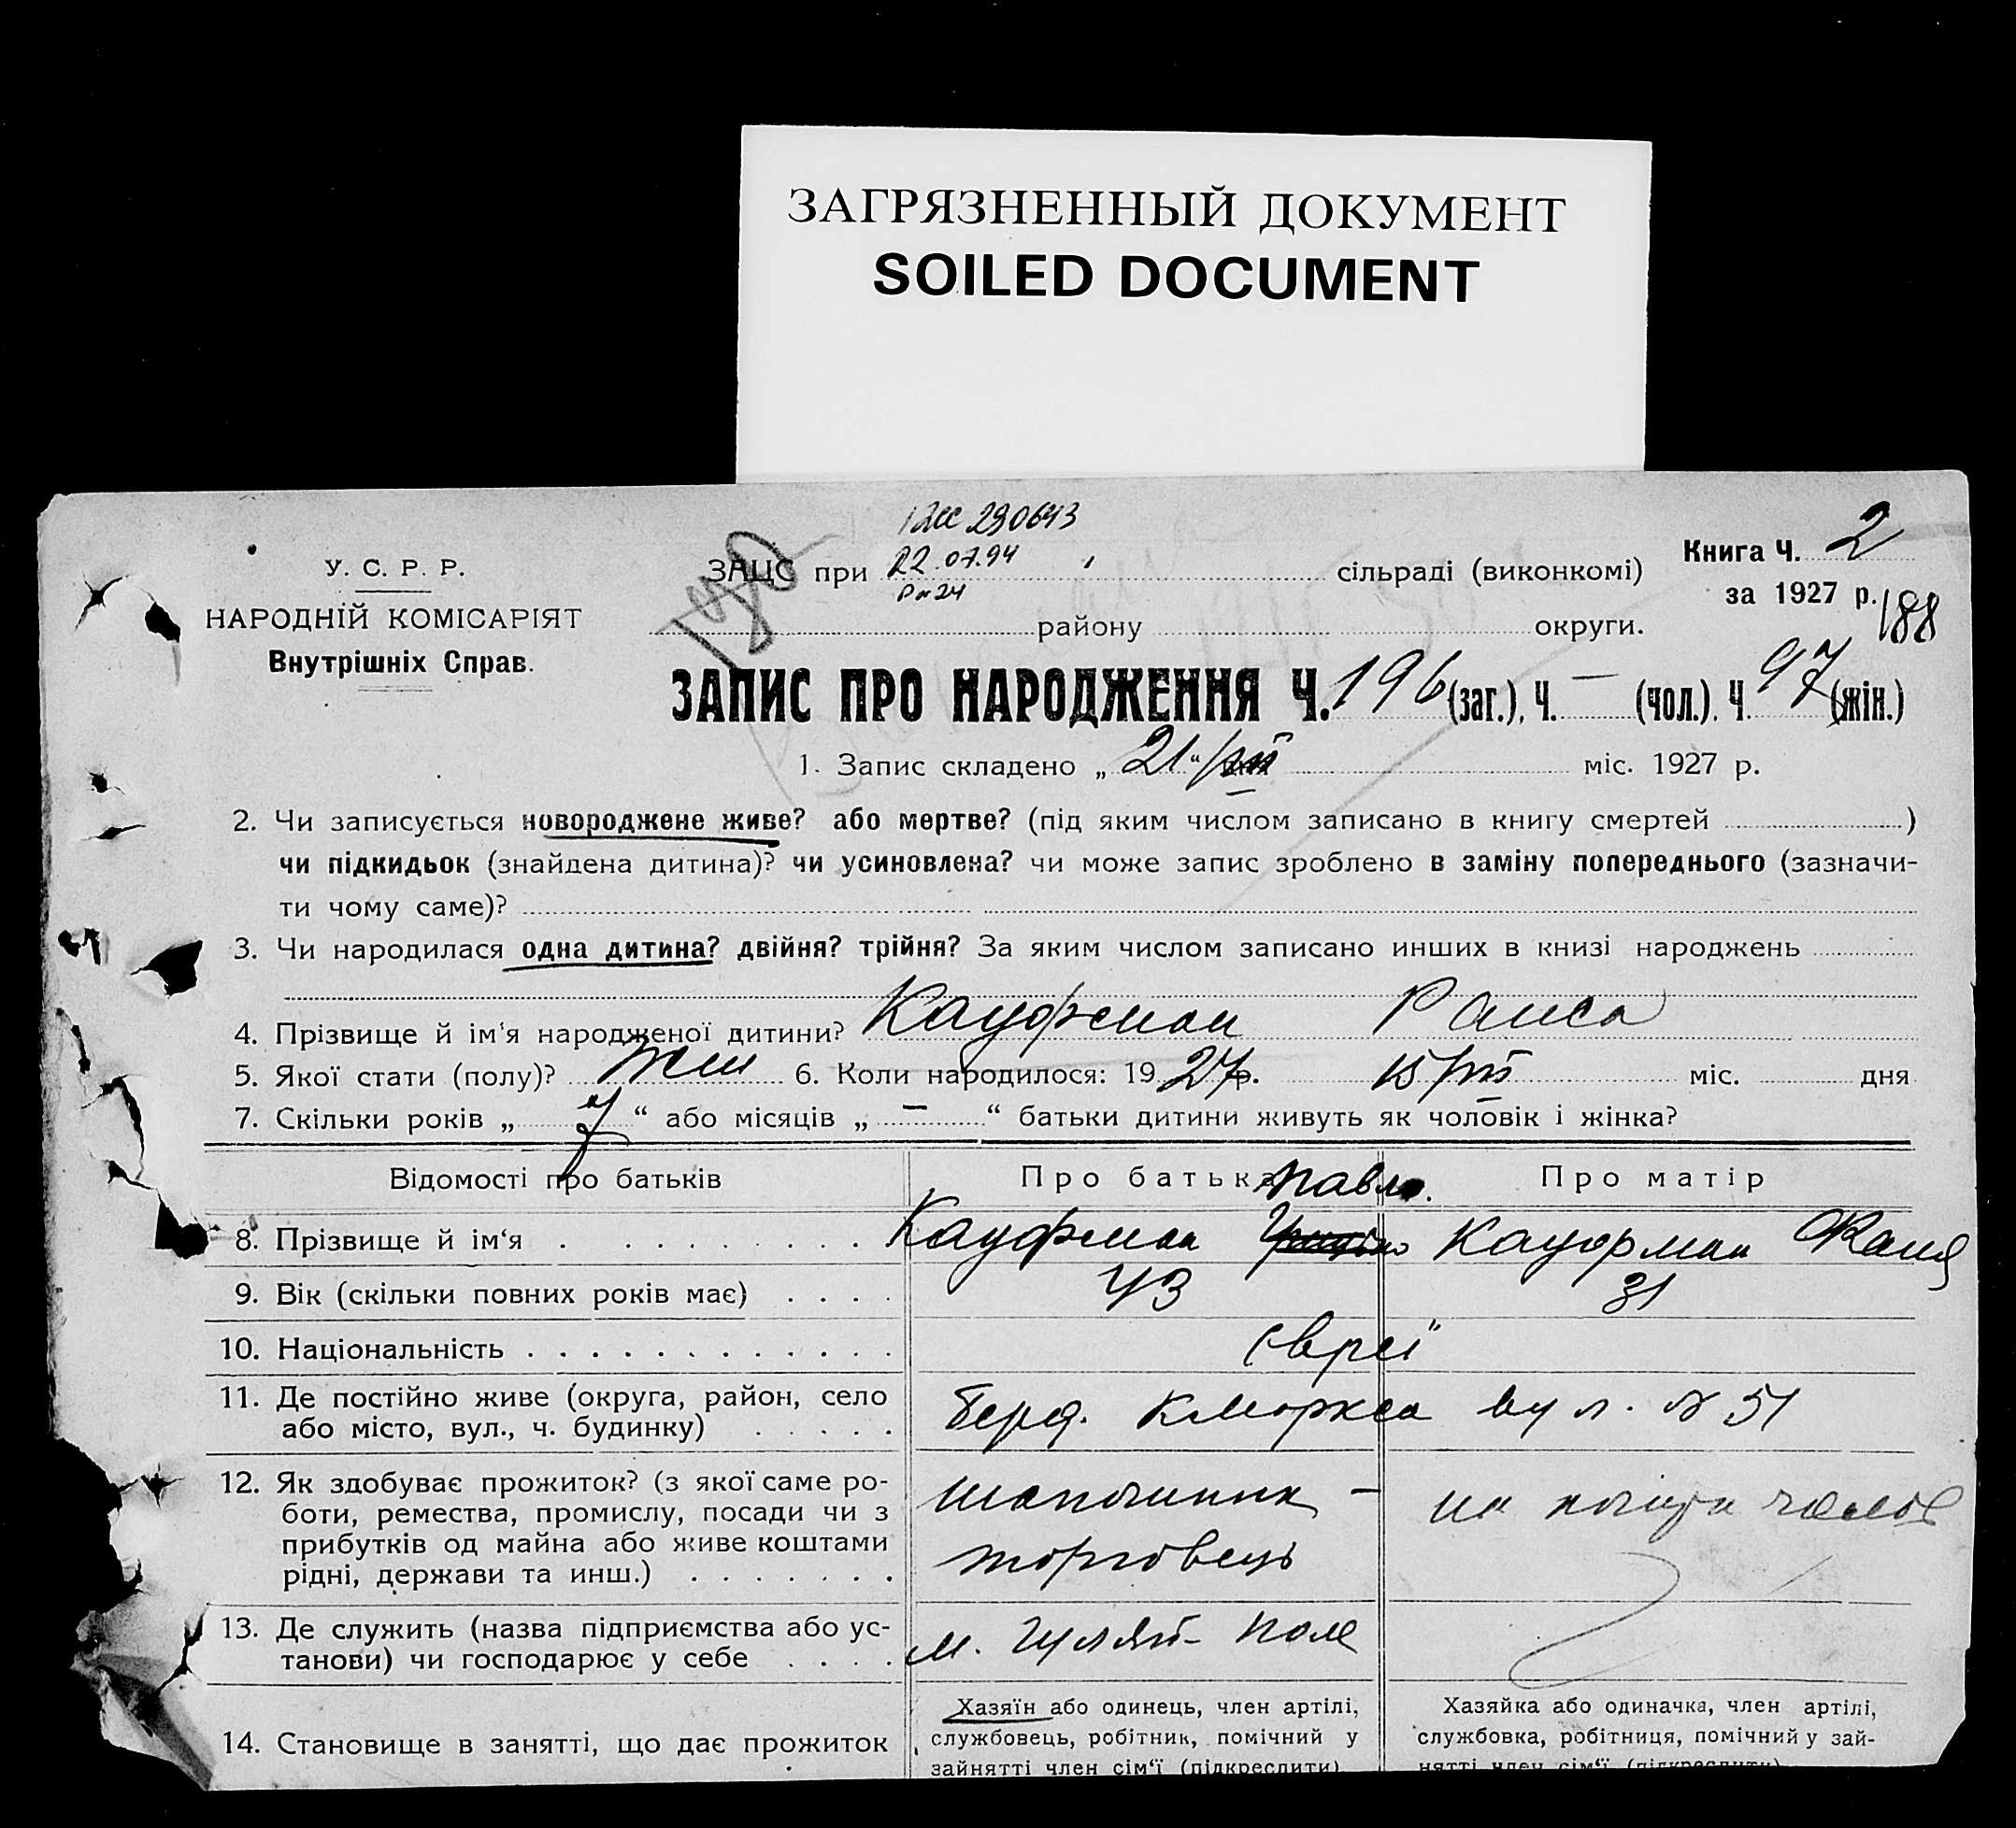 ЗАГРЯЗНЕННЫЙ ДОКУМЕНТ
SOILED DOCUMENT
290643
У. С. Р. Р.
НАРОДНІЙ КОМІСАРІЯТ
Внутрішніх Справ.
ЗАЦС при 22.07.94 сільраді (виконкомі)
Книга Ч. 2
за 1927 р.
188
району округи.
ЗАПИС ПРО НАРОДЖЕННЯ Ч. 196 (заг.), Ч. — (чол.). Ч 97 (жін.)
1. Запис складено „ 21 “ міс. 1927 р.
2. Чи записується новороджене живе? або мертве? (під яким числом записано в книгу смертей )
чи підкидьок (знайдена дитина)? чи усиновлена? чи може запис зроблено в заміну попереднього (зазначи-
ти чому саме)?
3. Чи народилася одна дитина? двійня? трійня? За яким числом записано инших в книзі народжень
4. Прізвище й ім‘я народженої дитини? Кауфман Раиса
5. Якої стати (полу)? жін 6. Коли народилося: 1927р. 15/ міс. дня
7. Скільки років „ “ або місяців „ — “ батьки дитини живуть як чоловік і жінка?
Відомості про батьків
Про батька
Про матір
Павло.
8. Прізвище й ім‘я Кауфман Кауфман Фаня
9. Вік (скільки повних років має) 43 31
10. Національність євреї
11. Де постійно живе (округа, район, село
або місто, вул., ч. будинку)
Берд. К Маркса вул. № 51
12. Як здобуває прожиток? (з якої саме ро-
боти, ремества, промислу, посади чи з
прибутків од майна або живе коштами
рідні, держави та инш.)
шапочник -
торговець
на
13. Де служить (назва підприємства або ус-
танови) чи господарює у себе
м. Гуляй-Поле
14. Становище в занятті, що дає прожиток
Хазяїн або одинець, член артілі,
службовець, робітник, помічний у
зайнятті член сім‘ї (підкреслити)
Хазяйка або одиначка, член артілі,
службовка, робітниця, помічний у зай-
нятті член сім‘ї (підкреслити)